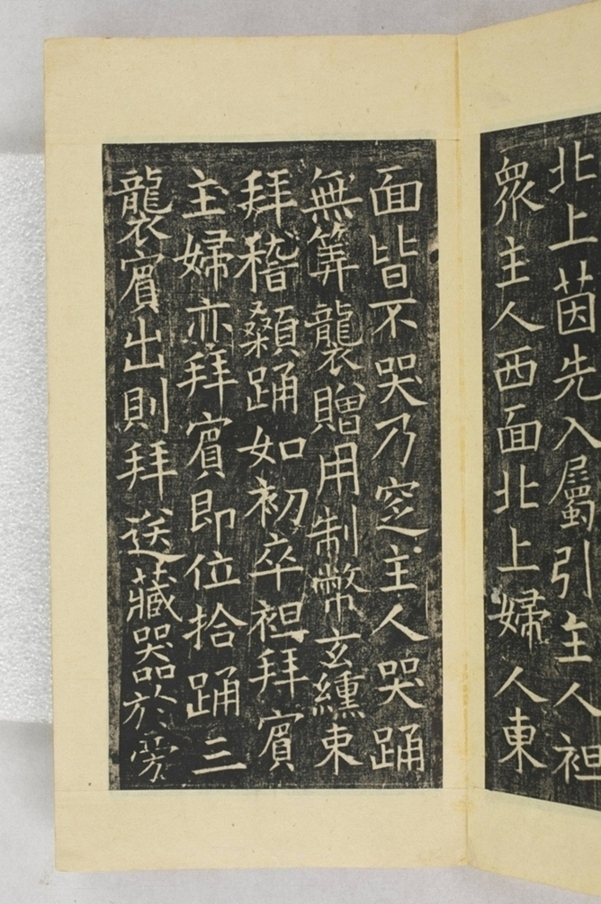 北上茵先入屬引主人袒
衆主人西面北上婦人東
面皆不哭乃窆主人哭踊
無筭襲贈用制幣玄纁束
拜稽顙踊如初卒袒拜賓
主婦亦拜賓即位拾踊三
襲賓出則拜送藏器於旁